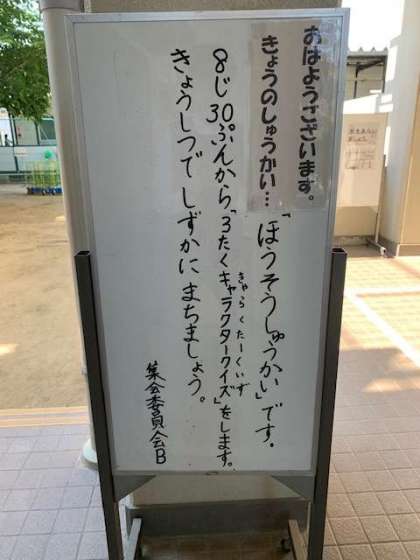 おはようございます。
きょうのしゅうかい…
「ほうそうしゅうかい」です。
8じ30ぷんから「3たくキャラクタークイズ」をします。
きゃらくたーくいず
きょうしつで しずかに まちましょう。
集会委員会B